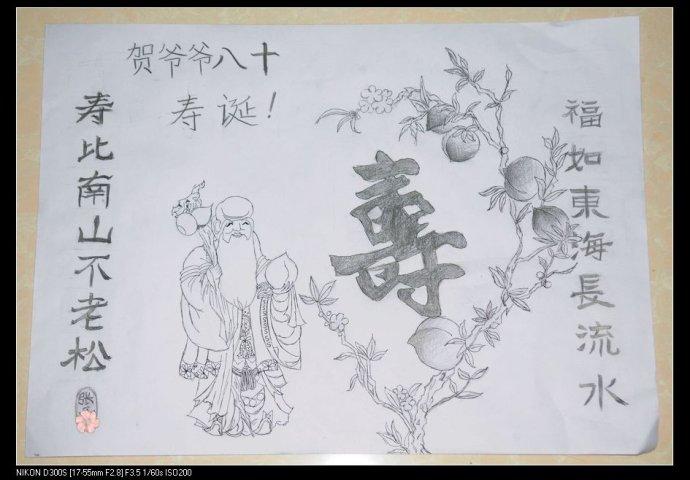 贺爷爷八十
寿诞!
福如東海長流水
寿比南山不老松
壽
张
NIKON D300S [17-55mm F2.8] F3.5 1/60s ISO200